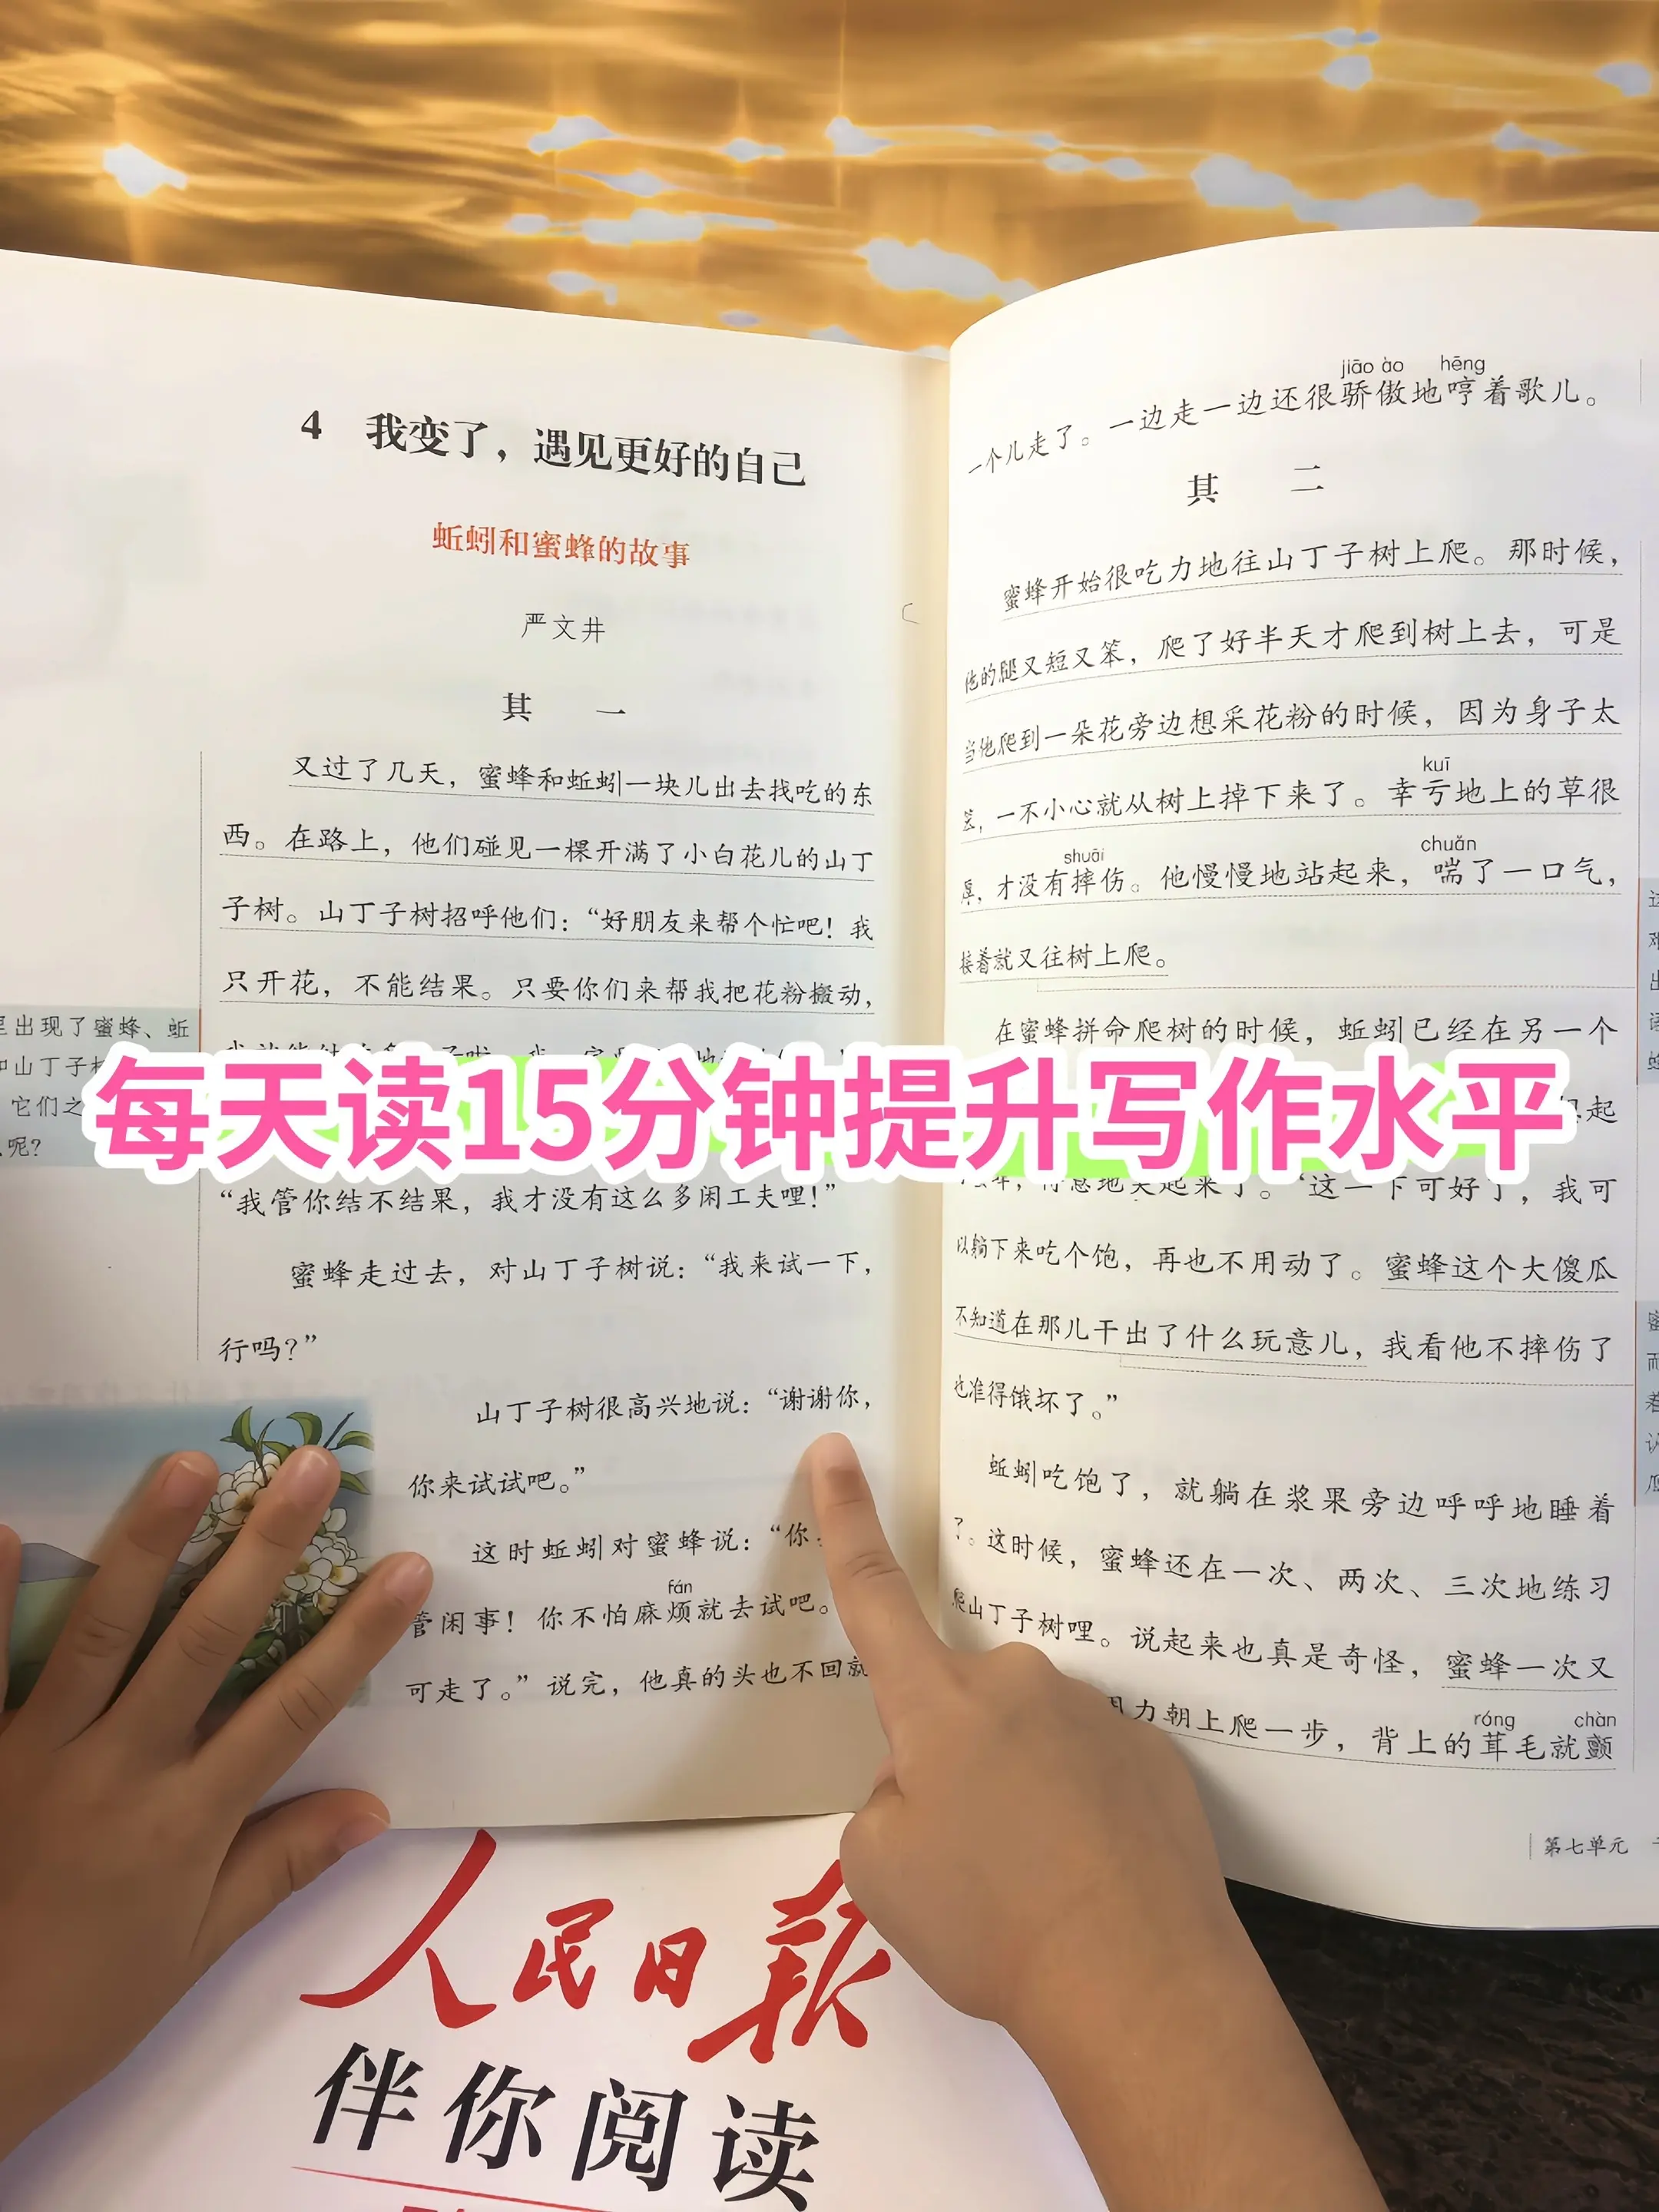 4 我变了，遇见更好的自己
蚯蚓和蜜蜂的故事
严文井
其 一
又过了几天，蜜蜂和蚯蚓一块儿出去找吃的东
西。在路上，他们碰见一棵开满了小白花儿的山丁
子树。山丁子树招呼他们：“好朋友来帮个忙吧！我
只开花，不能结果。只要你们来帮我把花粉搬动，
出现了蜜蜂、蚯
山丁子
它们之
呢？
“我管你结不结果，我才没有这么多闲工夫哩！”
蜜蜂走过去，对山丁子树说：“我来试一下，
行吗？”
山丁子树很高兴地说：“谢谢你，
你来试试吧。”
这时蚯蚓对蜜蜂说：“你
fán
管闲事！你不怕麻烦就去试吧。
可走了。”说完，他真的头也不回就
jiāo ào hēng
一个儿走了。一边走一边还很骄傲地哼着歌儿。
其 二
蜜蜂开始很吃力地往山丁子树上爬。那时候，
他的腿又短又笨，爬了好半天才爬到树上去，可是
当他爬到一朵花旁边想采花粉的时候，因为身子太
kuī
笨，一不小心就从树上掉下来了。幸亏地上的草很
shuāi chuǎn
厚，才没有摔伤。他慢慢地站起来，喘了一口气，
接着就又往树上爬。
在蜜蜂拼命爬树的时候，蚯蚓已经在另一个
起
得意地笑起来了。“这一下可好了，我可
以躺下来吃个饱，再也不用动了。蜜蜂这个大傻瓜
不知道在那儿干出了什么玩意儿，我看他不摔伤了
也准得饿坏了。”
蚯蚓吃饱了，就躺在浆果旁边呼呼地睡着
了。这时候，蜜蜂还在一次、两次、三次地练习
爬山丁子树哩。说起来也真是奇怪，蜜蜂一次又
róng chàn
力朝上爬一步，背上的茸毛就颤
第七单元
每天读15分钟提升写作水平
人民日报
伴你阅读